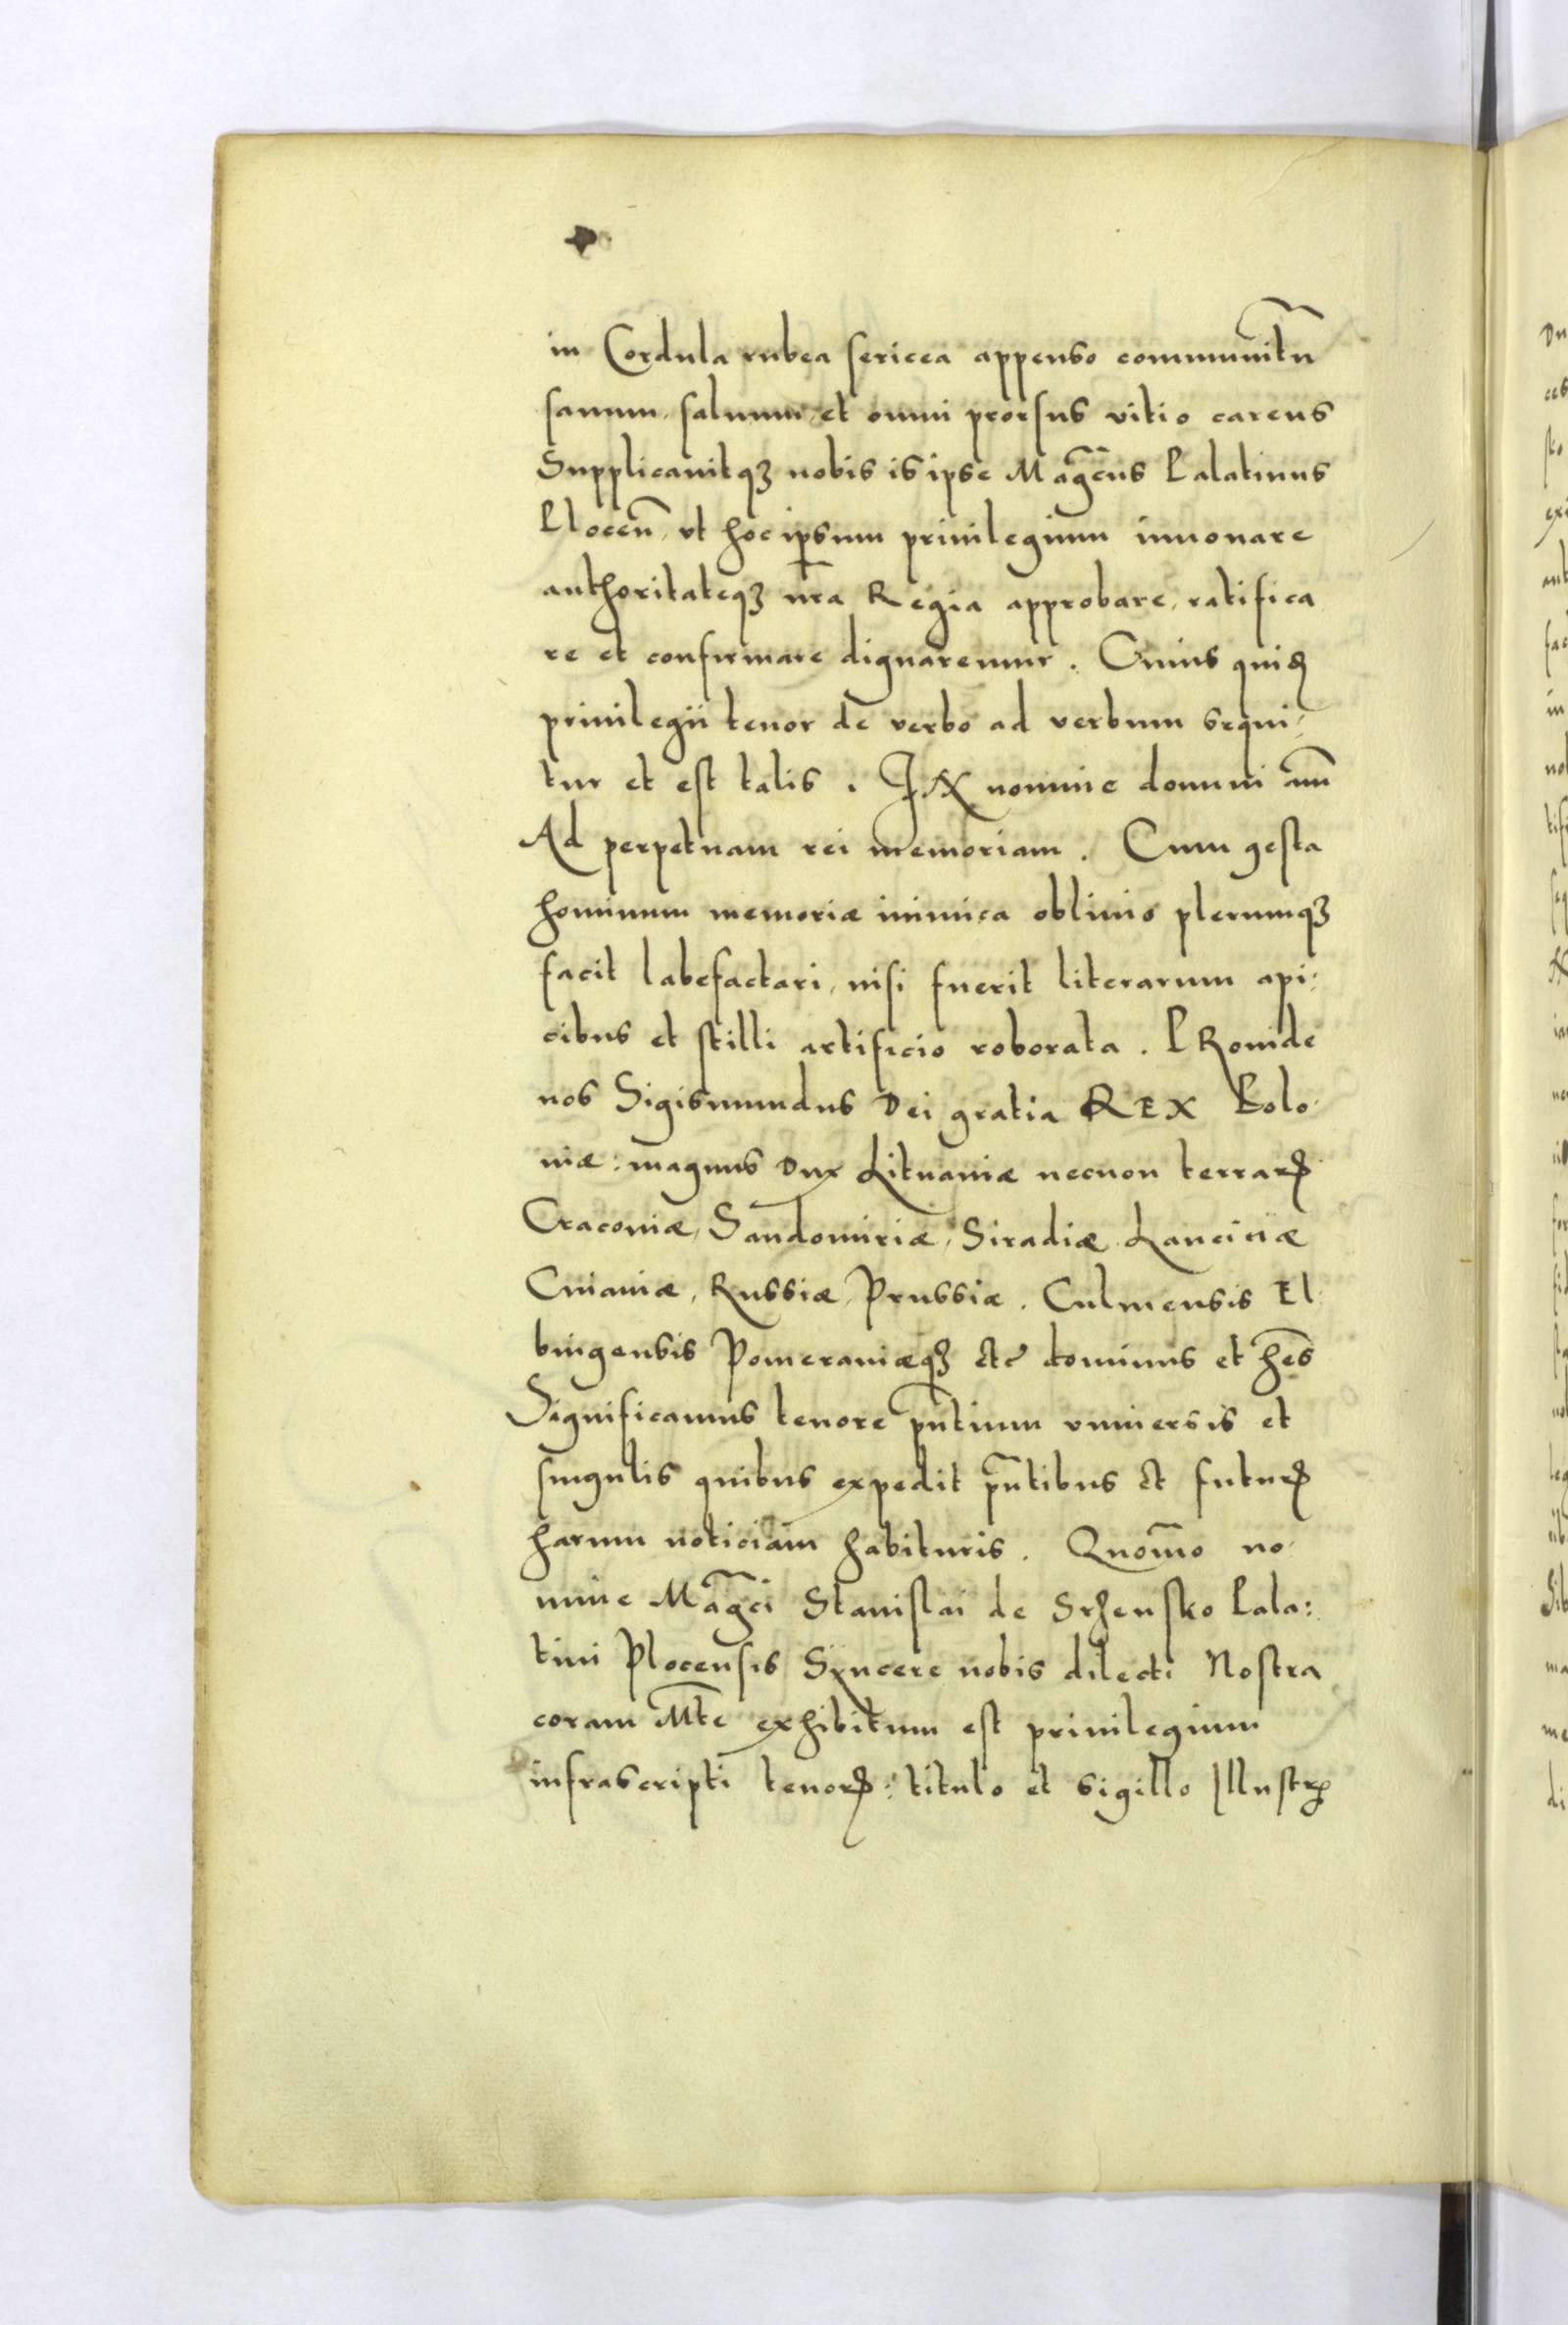 in Cordula rubea sericea appenso communitũ
sanum, saluum, et omni prorsus vitio carens
Supplicauitqꝫ nobis is ipse Magc̃us Palatinus
Plocen̄, vt hoc ipsum priuilegium innouare
authoritateqꝫ nr̃a Regia approbare, ratifica
re et confirmare dignaremur. Cuius quiꝫ
priuilegii tenor de verbo ad verbum sequi-
tur et est talis. IN nomine domini am̃
Ad perpetuam rei memoriam. Cum gesta
hominum memoriæ inimica obliuio plerumqꝫ
facit labefactari, nisi fuerit literarum api-
cibus et stilli artificio roborata. PRouide
nos Sigismundus Dei gratia REX Polo-
niæ: magnus Dux Lituaniæ necnon terrarꝝ
Cracouiæ, Sandomiriæ, Siradiæ Lanciciæ
Cuiauiæ, Russiæ, Prussiæ. Culmensis El-
bingensis Pomeraniæqꝫ etc̃ dominus et hẽs
Significamus tenore pñtium vniuersis et
singulis quibus expedit pñtibus et futurꝭ
harum noticiam habituris. Quom̃o no-
mine Mag̃ci Stanislai de Srzensko Pala:
tini Plocensis Syncere nobis dilecti Nostra
coram Mt̃e exhibitum est priuilegium
infrascripti tenorꝭ: titulo et sigillo Illustrꝭ